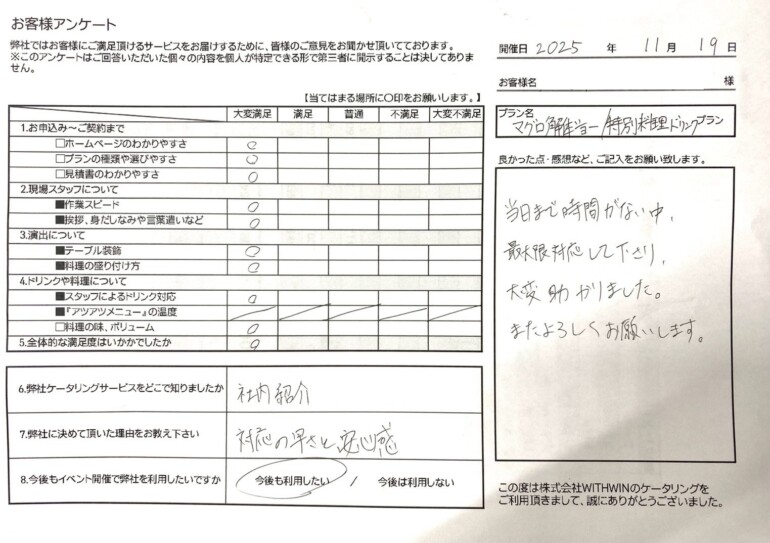 お客様アンケート
弊社ではお客様にご満足頂けるサービスをお届けするために、皆様のご意見をお聞かせ頂いております。
※このアンケートはご回答いただいた個々の内容を個人が特定できる形で第三者に開示することは決してありま
せん。
【当てはまる場所に〇印をお願いします。】
大変満足 満足 普通 不満足 大変不満足
1.お申込み～ご契約まで
□ホームページのわかりやすさ ○
□プランの種類や選びやすさ ○
□見積書のわかりやすさ ○
2.現場スタッフについて
■作業スピード ○
■挨拶、身だしなみや言葉遣いなど ○
3.演出について
■テーブル装飾 ○
■料理の盛り付け方 ○
4.ドリンクや料理について
■スタッフによるドリンク対応 ○
■『アツアツメニュー』の温度
□料理の味、ボリューム ○
5.全体的な満足度はいかがでしたか ○
6.弊社ケータリングサービスをどこで知りましたか 社内紹介
7.弊社に決めて頂いた理由をお教え下さい 対応の早さと安心感
8.今後もイベント開催で弊社を利用したいですか 今後も利用したい / 今後は利用しない
開催日 2025 年 11 月 19 日
お客様名 様
プラン名
マグロ解体ショー/特別料理ドリンクプラン
良かった点・感想など、ご記入をお願い致します。
当日まで時間がない中、
最大限対応して下さり、
大変助かりました。
またよろしくお願いします。
この度は株式会社WITHWINのケータリングを
ご利用頂きまして、誠にありがとうございました。